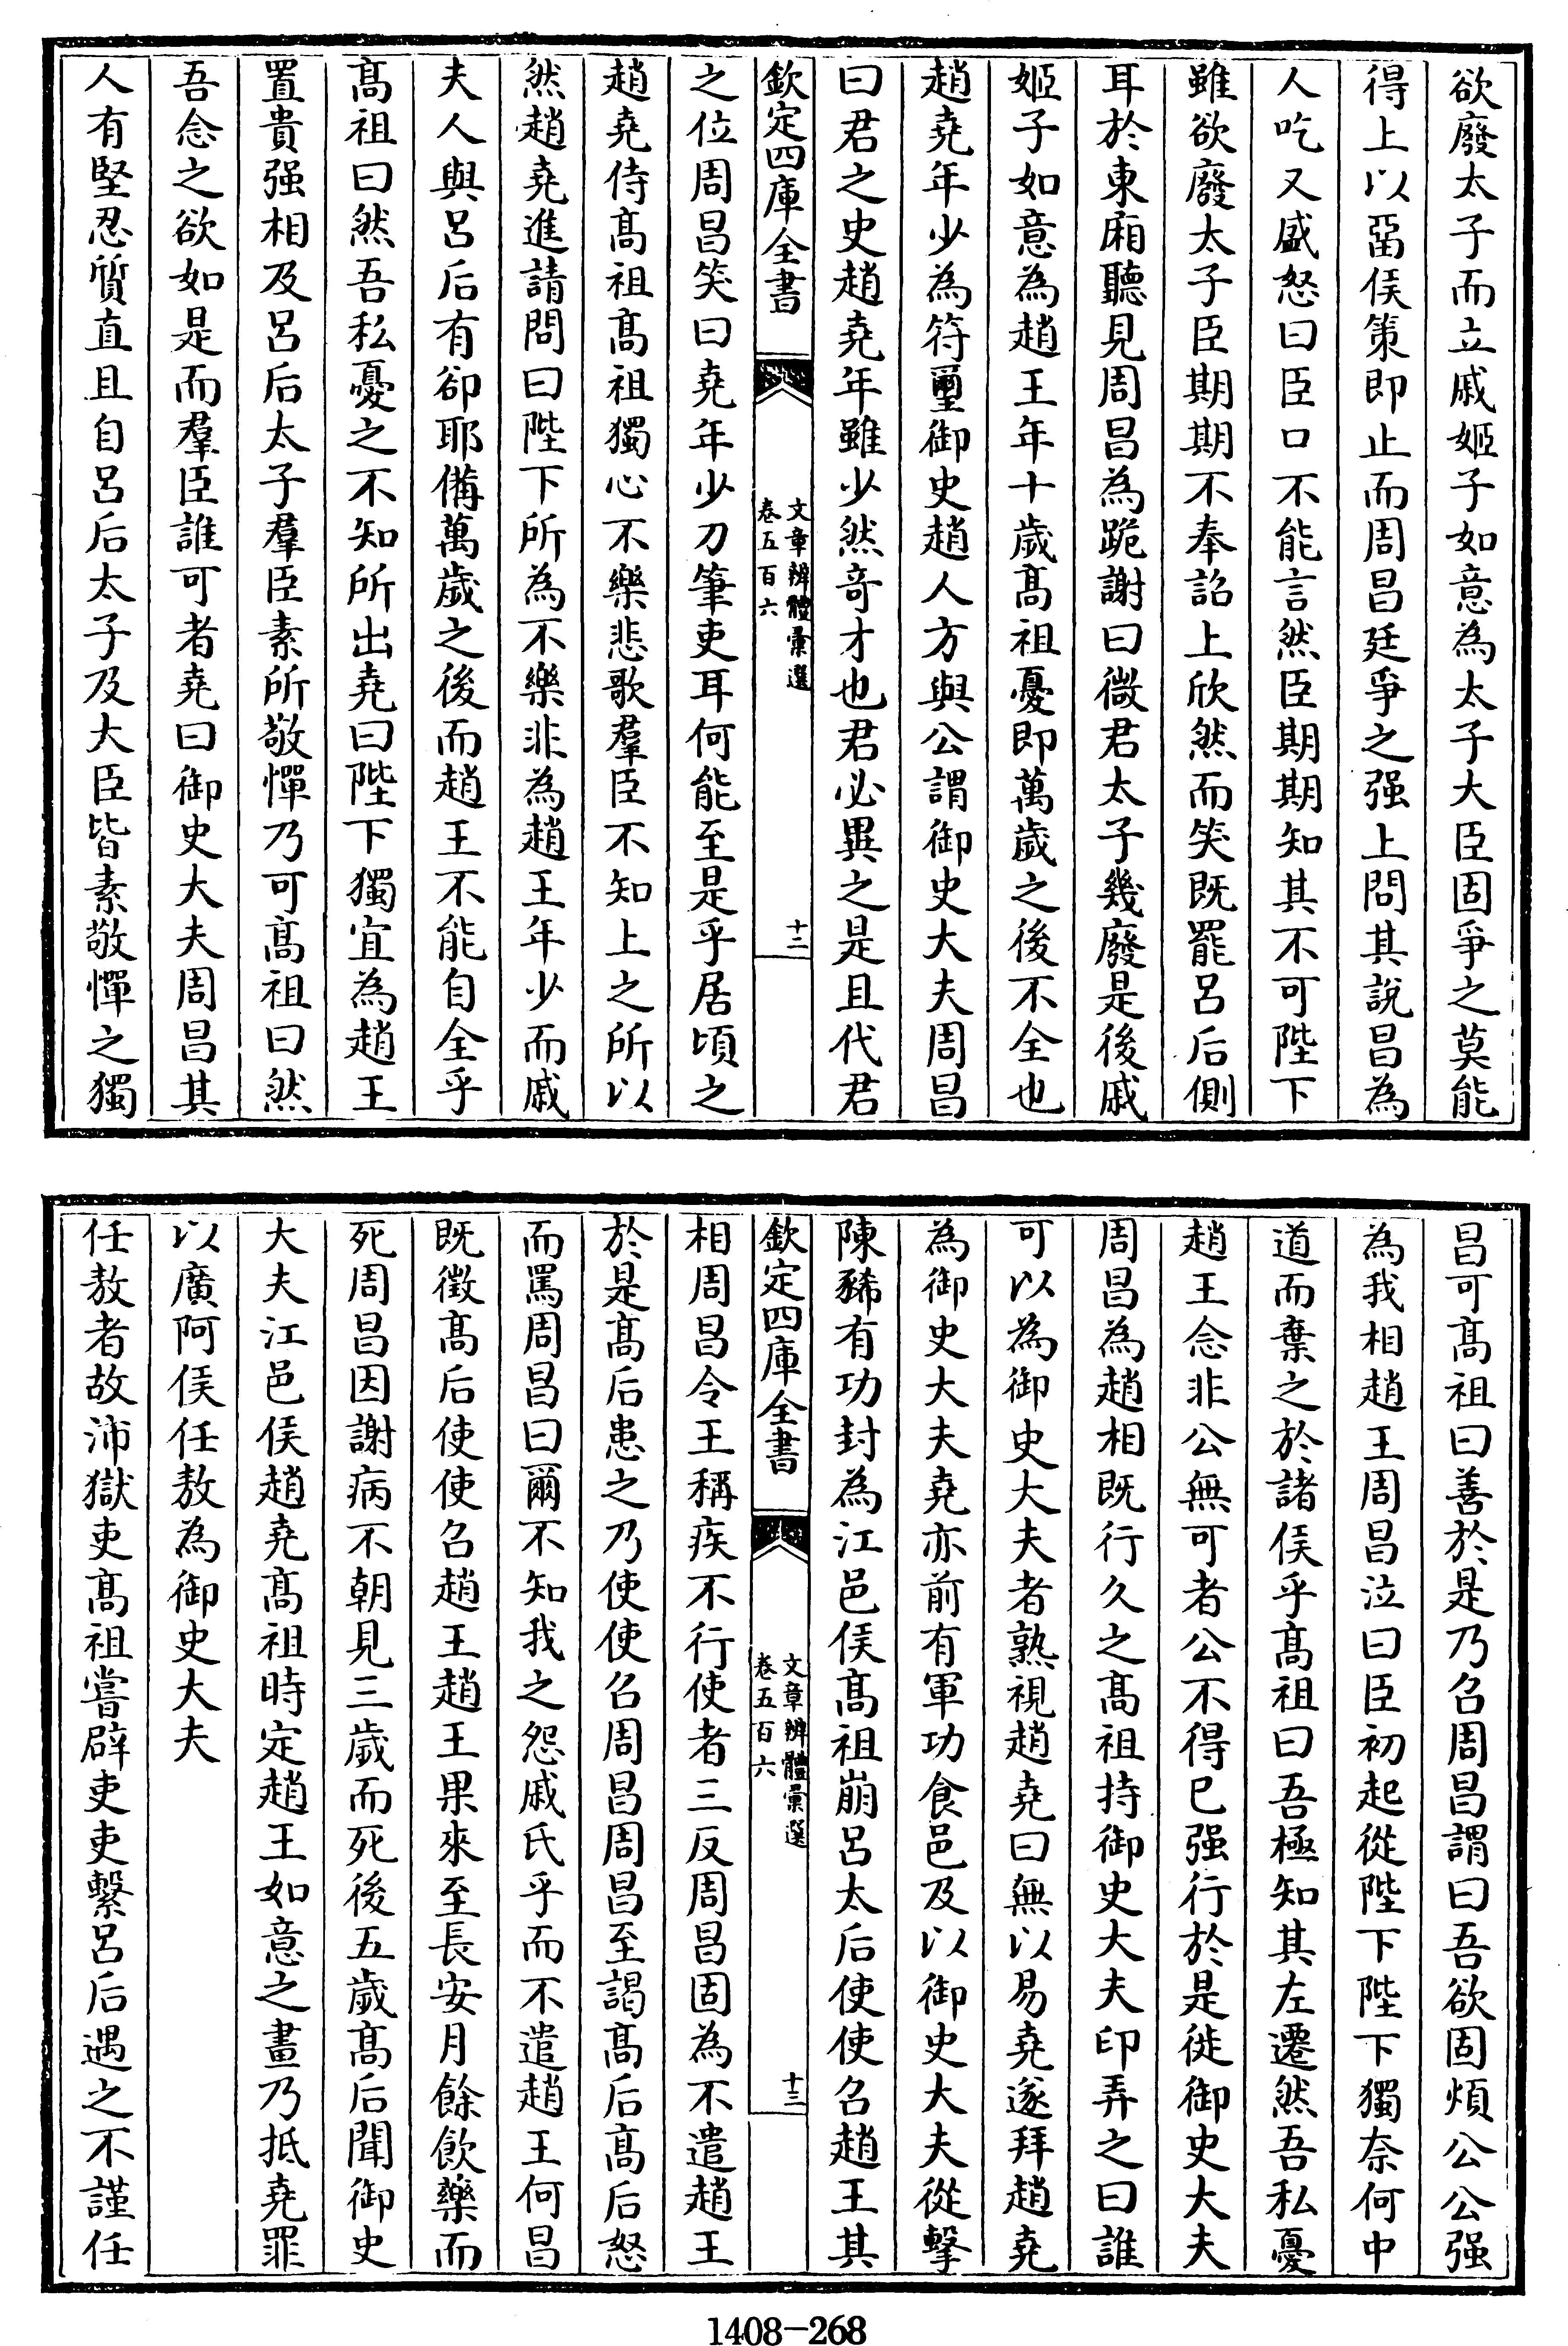 欲廢太子而立戚姬子如意為太子大臣固爭之莫能
得上以畱侯策即止而周昌廷爭之强上問其說昌為
人吃又盛怒曰臣口不能言然臣期期知其不可陛下
雖欲廢太子臣期期不奉詔上欣然而笑既罷呂后側
耳於東廂聽見周昌為跪謝曰微君太子幾廢是後戚
姬子如意為趙王年十歲髙祖憂即萬歲之後不全也
趙堯年少為符璽御史趙人方與公謂御史大夫周昌
曰君之史趙堯年雖少然竒才也君必異之是且代君
欽定四庫全書
文章辨體彙選
卷五百六
十二
之位周昌笑曰堯年少刀筆吏耳何能至是乎居頃之
趙堯侍髙祖髙祖獨心不樂悲歌羣臣不知上之所以
然趙堯進請問曰陛下所為不樂非為趙王年少而戚
夫人與呂后有卻耶備萬歲之後而趙王不能自全乎
髙祖曰然吾私憂之不知所出堯曰陛下獨宜為趙王
置貴强相及呂后太子羣臣素所敬憚乃可髙祖曰然
吾念之欲如是而羣臣誰可者堯曰御史大夫周昌其
人有堅忍質直且自呂后太子及大臣皆素敬憚之獨
昌可髙祖曰善於是乃召周昌謂曰吾欲固煩公公强
為我相趙王周昌泣曰臣初起從陛下陛下獨奈何中
道而棄之於諸侯乎髙祖曰吾極知其左遷然吾私憂
趙王念非公無可者公不得已强行於是徙御史大夫
周昌為趙相既行久之髙祖持御史大夫印弄之曰誰
可以為御史大夫者熟視趙堯曰無以易堯遂拜趙堯
為御史大夫堯亦前有軍功食邑及以御史大夫從擊
陳豨有功封為江邑侯髙祖崩呂太后使使召趙王其
欽定四庫全書
文章辨體彙選
卷五百六
十三
相周昌令王稱疾不行使者三反周昌固為不遣趙王
於是髙后患之乃使使召周昌周昌至謁髙后髙后怒
而罵周昌曰爾不知我之怨戚氏乎而不遣趙王何昌
既徵髙后使使召趙王趙王果來至長安月餘飲藥而
死周昌因謝病不朝見三歲而死後五歲髙后聞御史
大夫江邑侯趙堯髙祖時定趙王如意之畫乃抵堯罪
以廣阿侯任敖為御史大夫
任敖者故沛獄吏髙祖嘗辟吏吏繫呂后遇之不謹任
1408-268